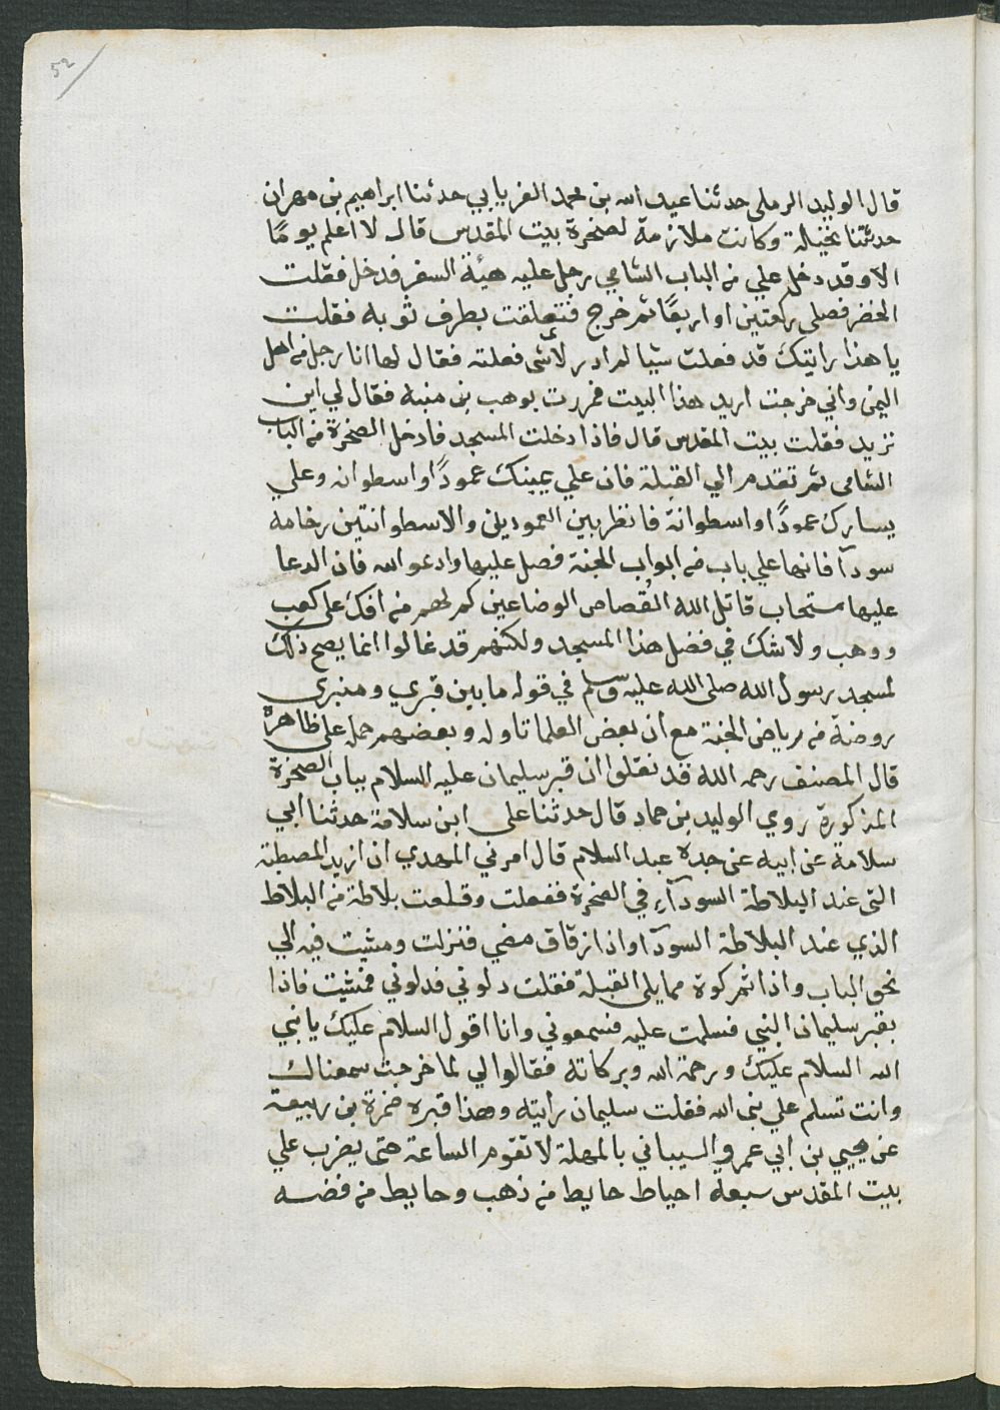 52
قال الوليد الرملي حدثنا عبد الله بن محمد الفريابي حدثنا ابراهيم بن مهران
حدثتنا نخيلة وكانت ملازمة لصخرة بيت المقدس قال لا اعلم يومًا
الا وقد دخل علي من الباب الشامي رجل عليه هيئة السفر فدخل فقلت
الخضر فصلى ركعتين او اربعًا ثم خرج فتعلقت بطرف ثوبه فقلت
يا هذا رايتك قد فعلت شيا لم ادر لاي شي فعلته فقال لها انا رجل من اهل
اليمن واني خرجت اريد هذا البيت فمررت بوهب بن منبه فقال لي اين
تريد فقلت بيت المقدس قال فاذا دخلت المسجد فادخل الصخرة من الباب
الشامي ثم تقدم الي القبلة فان علي يمينك عمودًا واسطوانه وعلي
يسارك عمودًا واسطوانة فانظر بين العمودين والاسطوانتين رخامه
سودآ فانها علي باب من ابواب الجنة فصل عليها وادعو الله فان الدعا
عليها مستجاب قاتل الله القُصاص الوضاعين كم لهم من افك على كعب
ووهب ولا شك في فضل هذا المسجد ولكنهم قد غالوا انما يصح ذلك
لمسجد رسول الله صلى الله عليه وسلم في قوله ما بين قبري ومنبري
روضة من رياض الجنة مع ان بعض العلما تاوله وبعضهم حمله على ظاهره
قال المصنف رحمه الله قد نقلوا ان قبر سليمان عليه السلام بباب الصخرة
المذكورة روي الوليد بن حماد قال حدثنا على ابن سلامة حدثنا ابي
سلامة عن ابيه عن جده عبد السلام قال امرني المهدي ان ازيد المصطبة
التى عند البلاطة السودآء في الصخرة ففعلت وقلعت بلاطة من البلاط
الذي عند البلاطة السودآ واذا زقاق مضي فنزلت ومشيت فيه الي
نحو الباب واذا ثم كوة مما يلي القبلة فقلت دلوني فدلوني فمشيت فاذا
بقبر سليمان النبي فسلمت عليه فسمعوني وانا اقول السلام عليك يا نبي
الله السلام عليك ورحمة الله وبركاته فقالوا لي لما خرجت سمعناك
وانت تسلم علي نبى الله فقلت سليمان رايته وهذا قبره ضمرة بن ربيعة
عن يحيي بن ابي عمرو السيباني بالمهملة لا تقوم الساعة حتى يضرب علي
بيت المقدس سبعة احياط حايط من ذهب وحايط من فضه